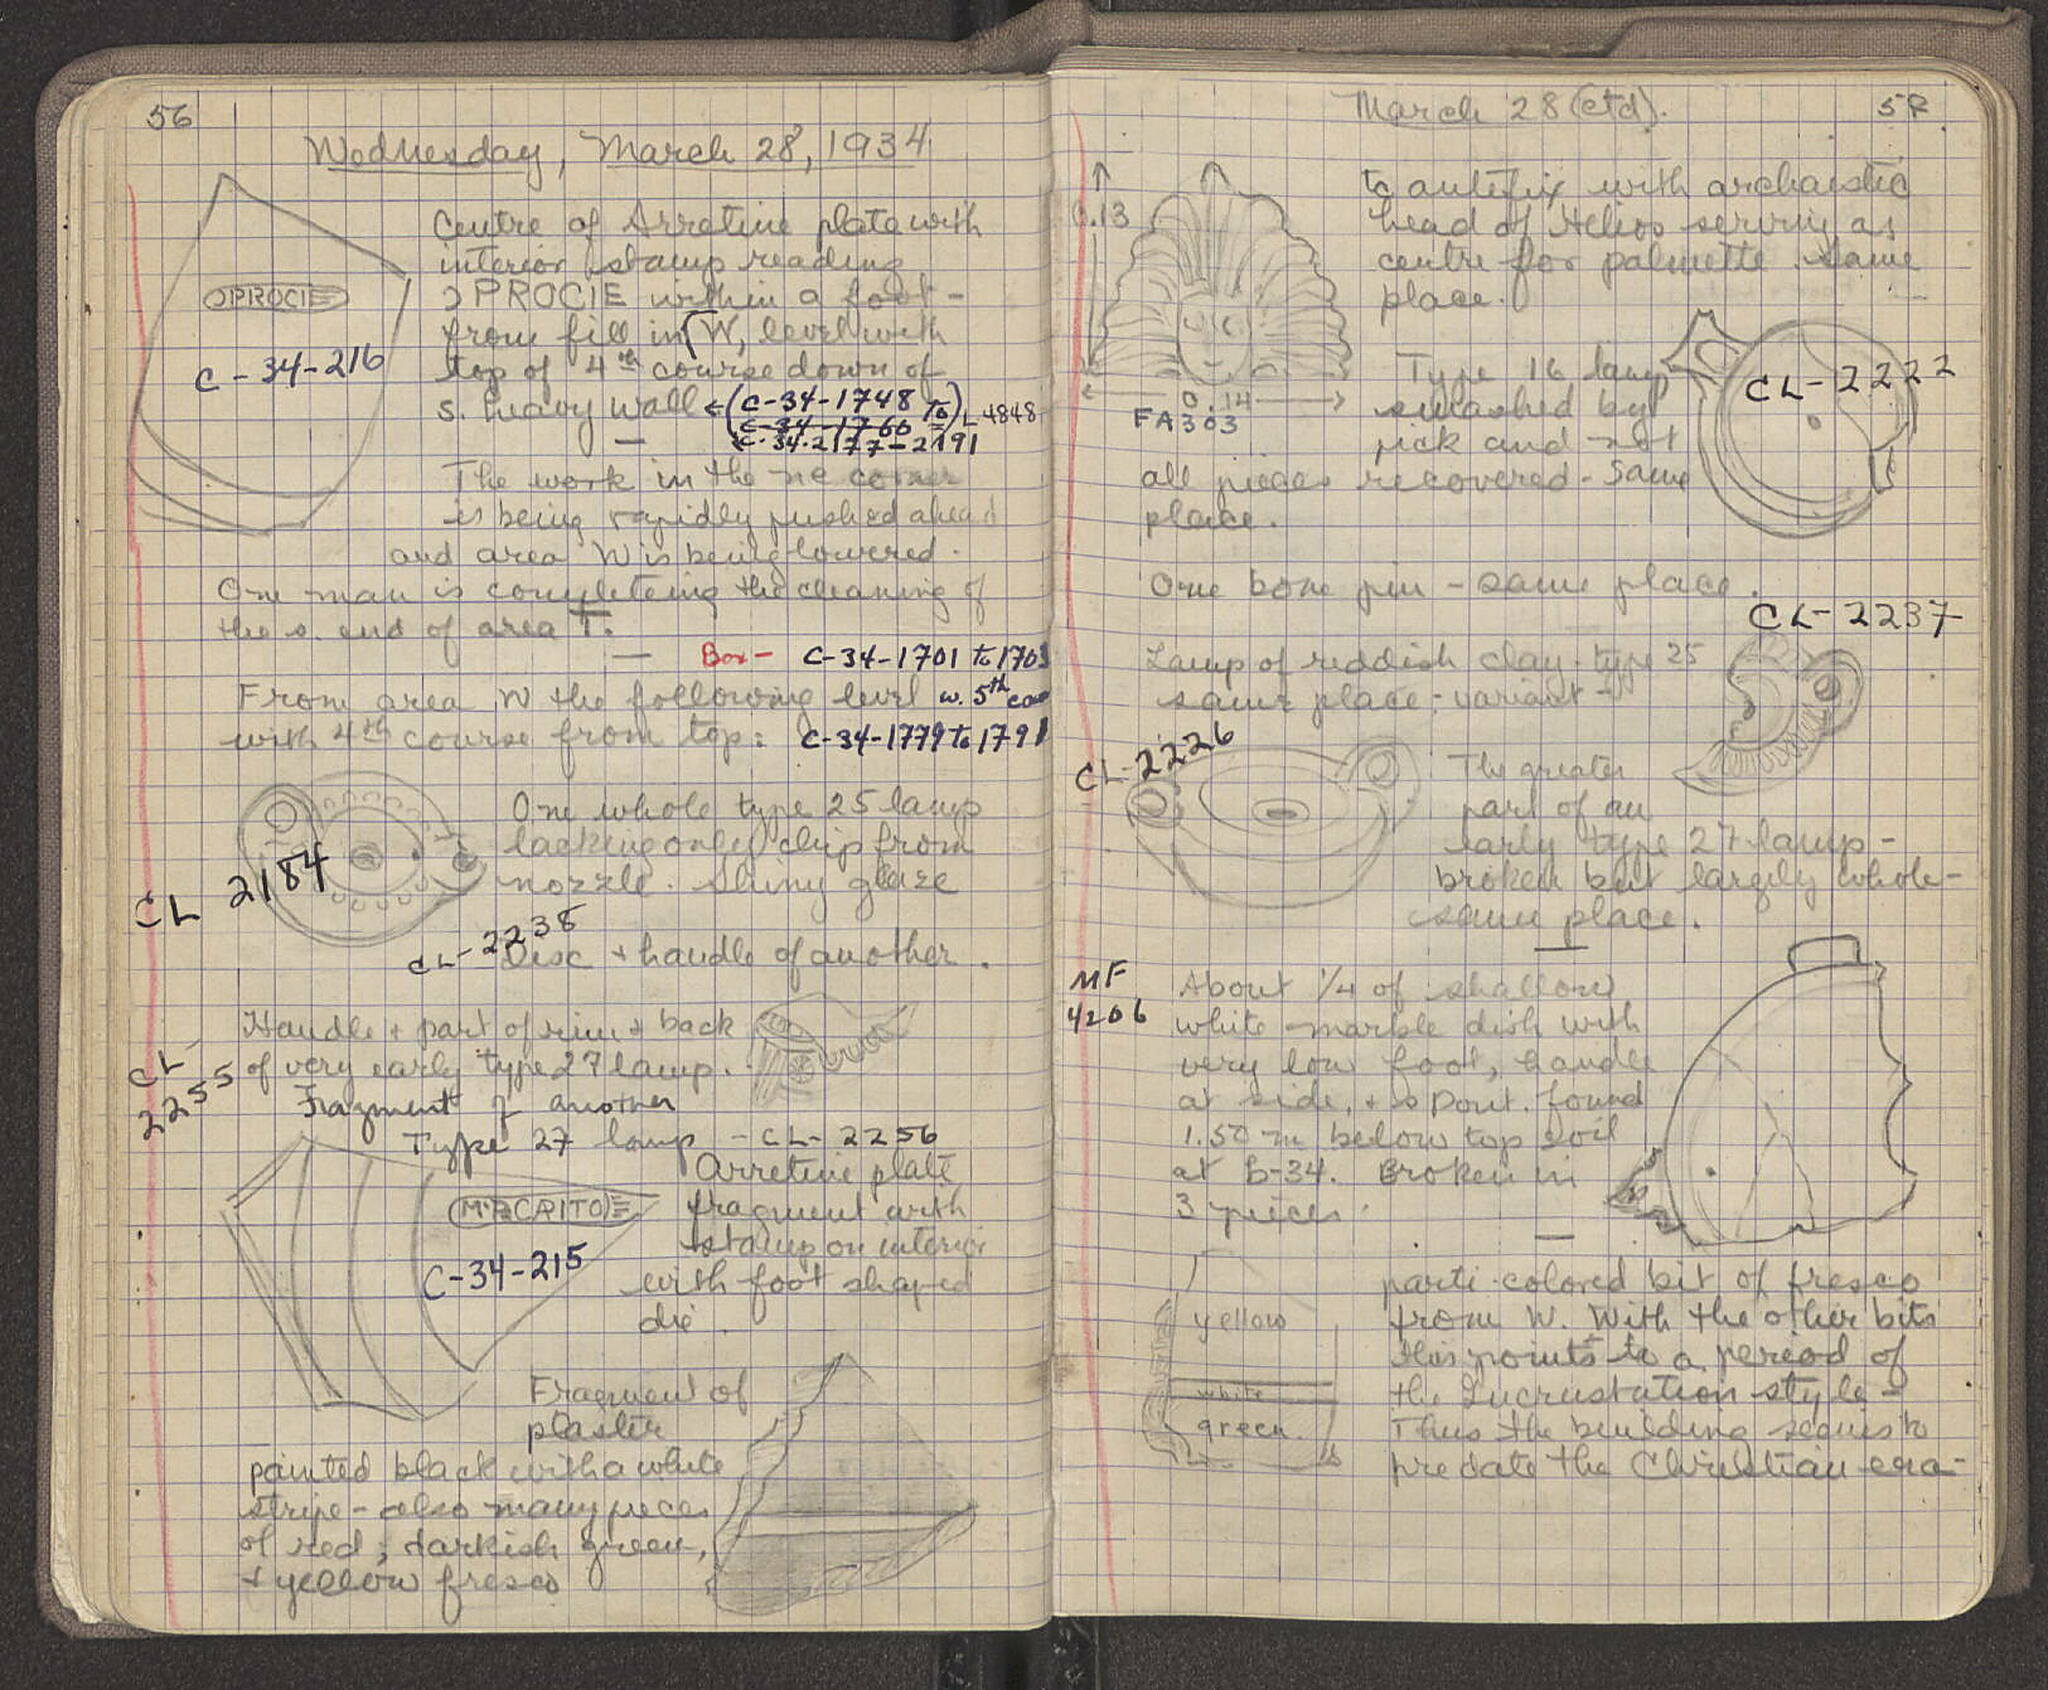 56
Wednesday, March 28, 1934.
Centre of Arretine plate with
interior stamp reading
ƆPROCIE within a foot -
from fill in W, level with
top of 4th course down of
s. heavy wall ← (C-34-1748 to) L 4848
C-34-1760
C-34-2177-2191
ƆPROCIE
C-34-216
The work in the ne corner
is being rapidly pushed ahead
and area W is being lowered.
One man is completeing the cleaning of
the s. end of area T.
Box- C-34-1701 to 1703
From area W the following level w. 5th
with 4th course from top: C-34-1779 to 1791
One whole type 25 lamp
lacking only chip from
nozzle. Shiny glaze
CL 2184
CL-2238
Disc + handle of another.
Handle + part of rim + back
of very early type 27 lamp.
CL-
2255
Fragment of another
Type 27 lamp - CL-2256
Arretine plate
fragment with
stamp on interior
with foot shaped
die.
C-34-215
Fragment of
plaster
painted black with a white
stripe - also many pieces
of red, darkish green,
+ yellow fresco
March 28 (ctd).
0.13
0.14
FA303
tc antefix with archaistic
head of Helios serving as
centre for palmette. Same
place.
Type 16 lamp
smashed by
pick and not
all pieces recovered - Same
place.
CL-2222
One bone pin - same place.
CL-2237
Lamp of reddish clay - type 25
same place - variant -
CL-2226
The greater
part of an
early type 27 lamp -
broken but largely whole -
same place.
MF
4206
About 1/4 of shallow
white marble dish with
very low foot, handle
at side, + spout. found
1.50 m below top soil
at B-34. Broken in
3 pieces.
yellow
white
green.
parti-colored bit of fresco
from W. With the other bits
this points to a period of
the Incrustation style -
Thus the building seems to
predate the Christian era -